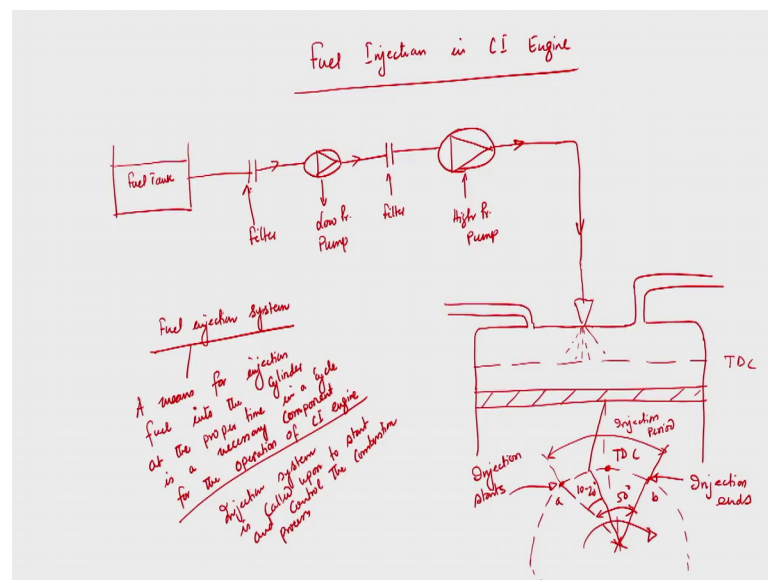 Fuel Injection in CI Engine
Fuel Tank
Filter
Low Pr.
Pump
Filter
High Pr.
Pump
TDC
Fuel injection system
A means for injection
fuel into the cylinder
at the proper time in a cycle
is a necessary component
for the operation of CI engine
Injection system
is called upon to start
and control the combustion
process
Injection
Period
TDC
Injection
starts
a
10-20°
50°
b
Injection
ends